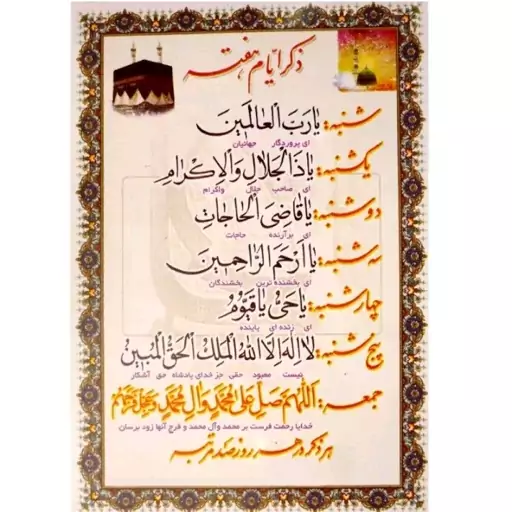 ذکر ایام هفته
شنبه: یا رَبَّ الْعالَمین
ای پروردگار جهانیان
یکشنبه: یا ذَالْجَلالِ وَالْاِکْرام
ای صاحب جلال واکرام
دوشنبه: یا قاضِیَ الْحاجات
ای برآرنده حاجات
سه شنبه: یا اَرْحَمَ الرّاحِمین
ای بخشنده ترین بخشندگان
چهارشنبه: یا حَیُّ یا قَیّوُمُ
ای زنده ای پاینده
پنج شنبه: لا اِلهَ اِلَّا اللهُ الْمَلِکُ الْحَقُّ الْمُبین
نیست معبود حقی جز خدای پادشاه حق آشکار
جمعه: اَللّهُمَّ صَلِّ عَلی مُحَمَّدٍ وَالِ مُحَمَّدٍ وَعَجِّلْ فَرَجَهُمْ
خدایا رحمت فرست بر محمد وآل محمد و فرج آنها زود برسان
هر ذکر در هر روز صد مرتبه